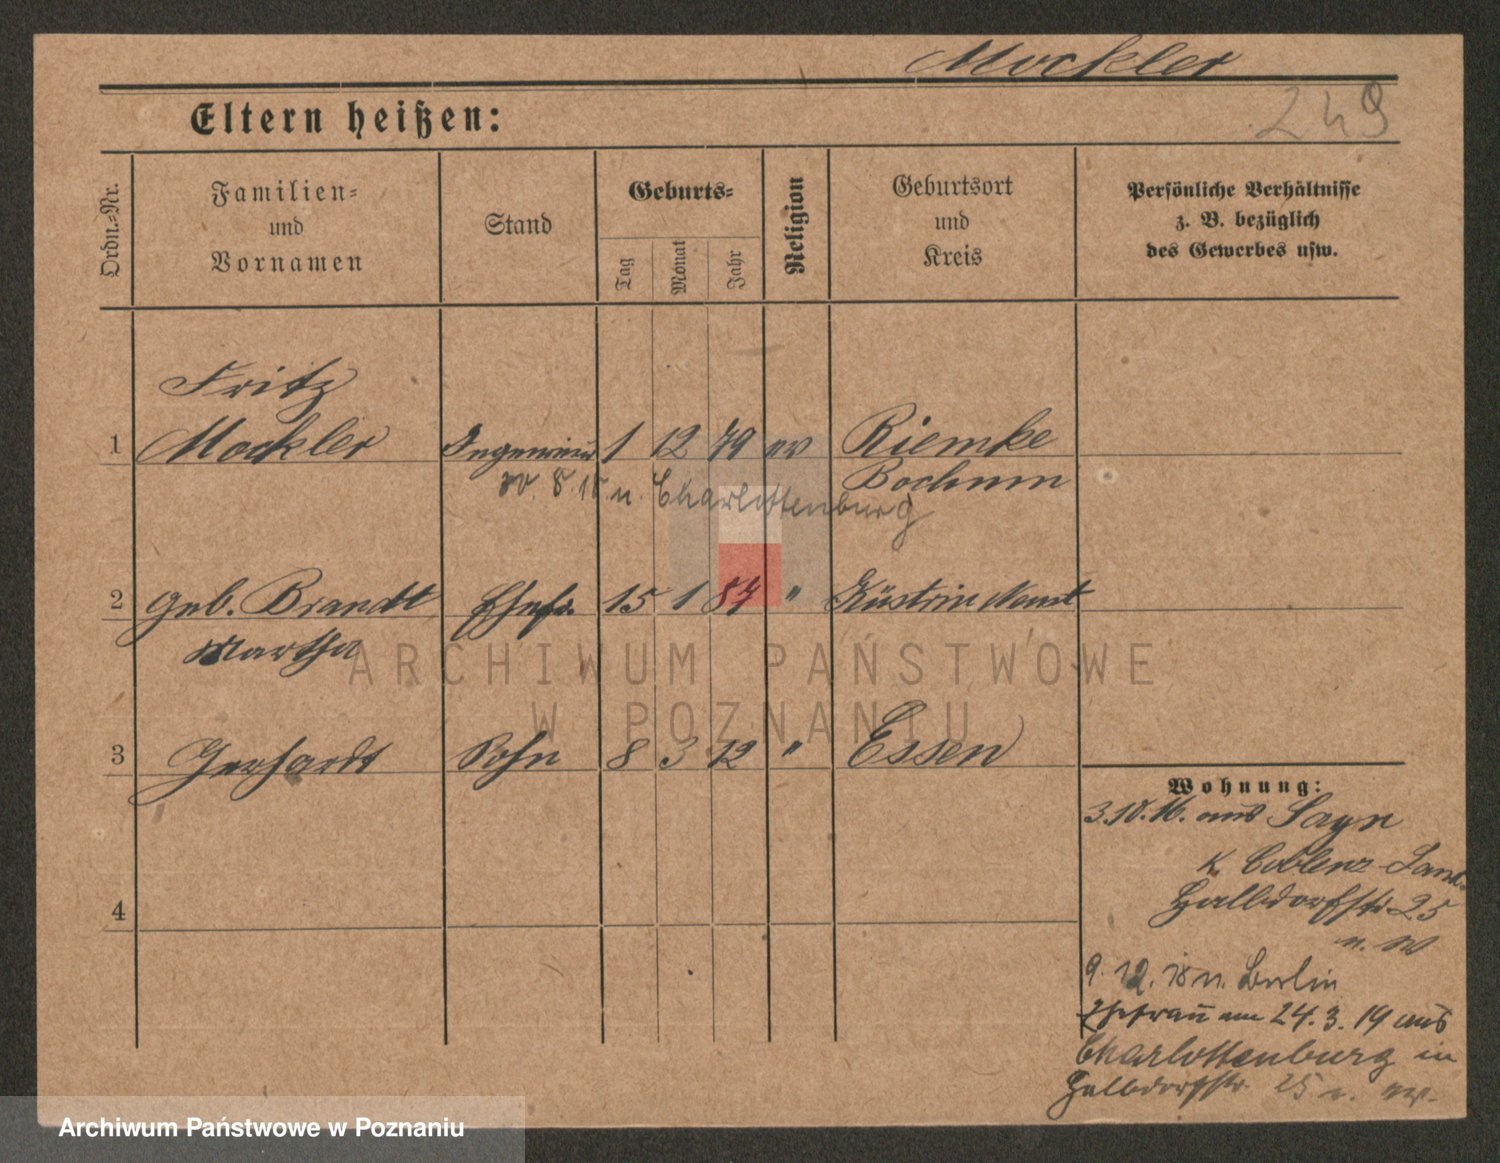 Mockler
249
Eltern heißen:
Ordn.-Nr.
Familien-
und
Vornamen
Stand
Geburts-
Tag
Monat
Jahr
Religion
Geburtsort
und
Kreis
Persönliche Verhältnisse
z. B. bezüglich
des Gewerbes usw.
Fritz
1 Mockler Ingenieur 1 12 79 ev Riemke
Bochum
n. Charlottenburg
2 geb. Brandt Ehefr. 15 1 87 " Küstrin Neust
Martha
3 Gerhardt Sohn 8 3 12 " Essen
4
Wohnung:
3.10.16. aus Sayn
K. Coblenz-Land
Halbdorfstr 25
9.12.18 n. Berlin
Ehefrau am 24.3.19 aus
Charlottenburg in
Halbdorfstr. 25
ARCHIWUM PAŃSTWOWE
W POZNANIU
Archiwum Państwowe w Poznaniu